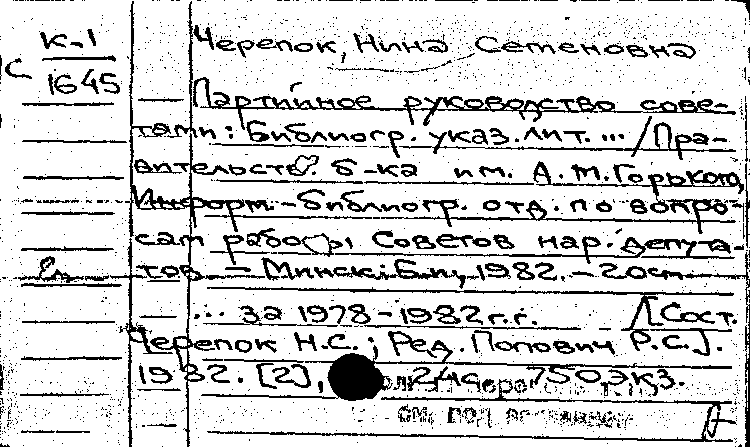 К-1
С 1645
Черепок, Нина Семеновна
Партийное руководство сове-
тами: Библиогр. указ. лит. ... / Пра-
вительств. б-ка им. А.М.Горького,
Информ.-библиогр. отд. по вопро-
сам работы Советов нар. депута-
тов – Минск: Б.и., 1982. – 20см
... за 1978-1982г.г. /[Сост.
Черепок Н.С.; Ред. Попович Р.С.].
1982. [2], 24с. 750,экз.
см. под